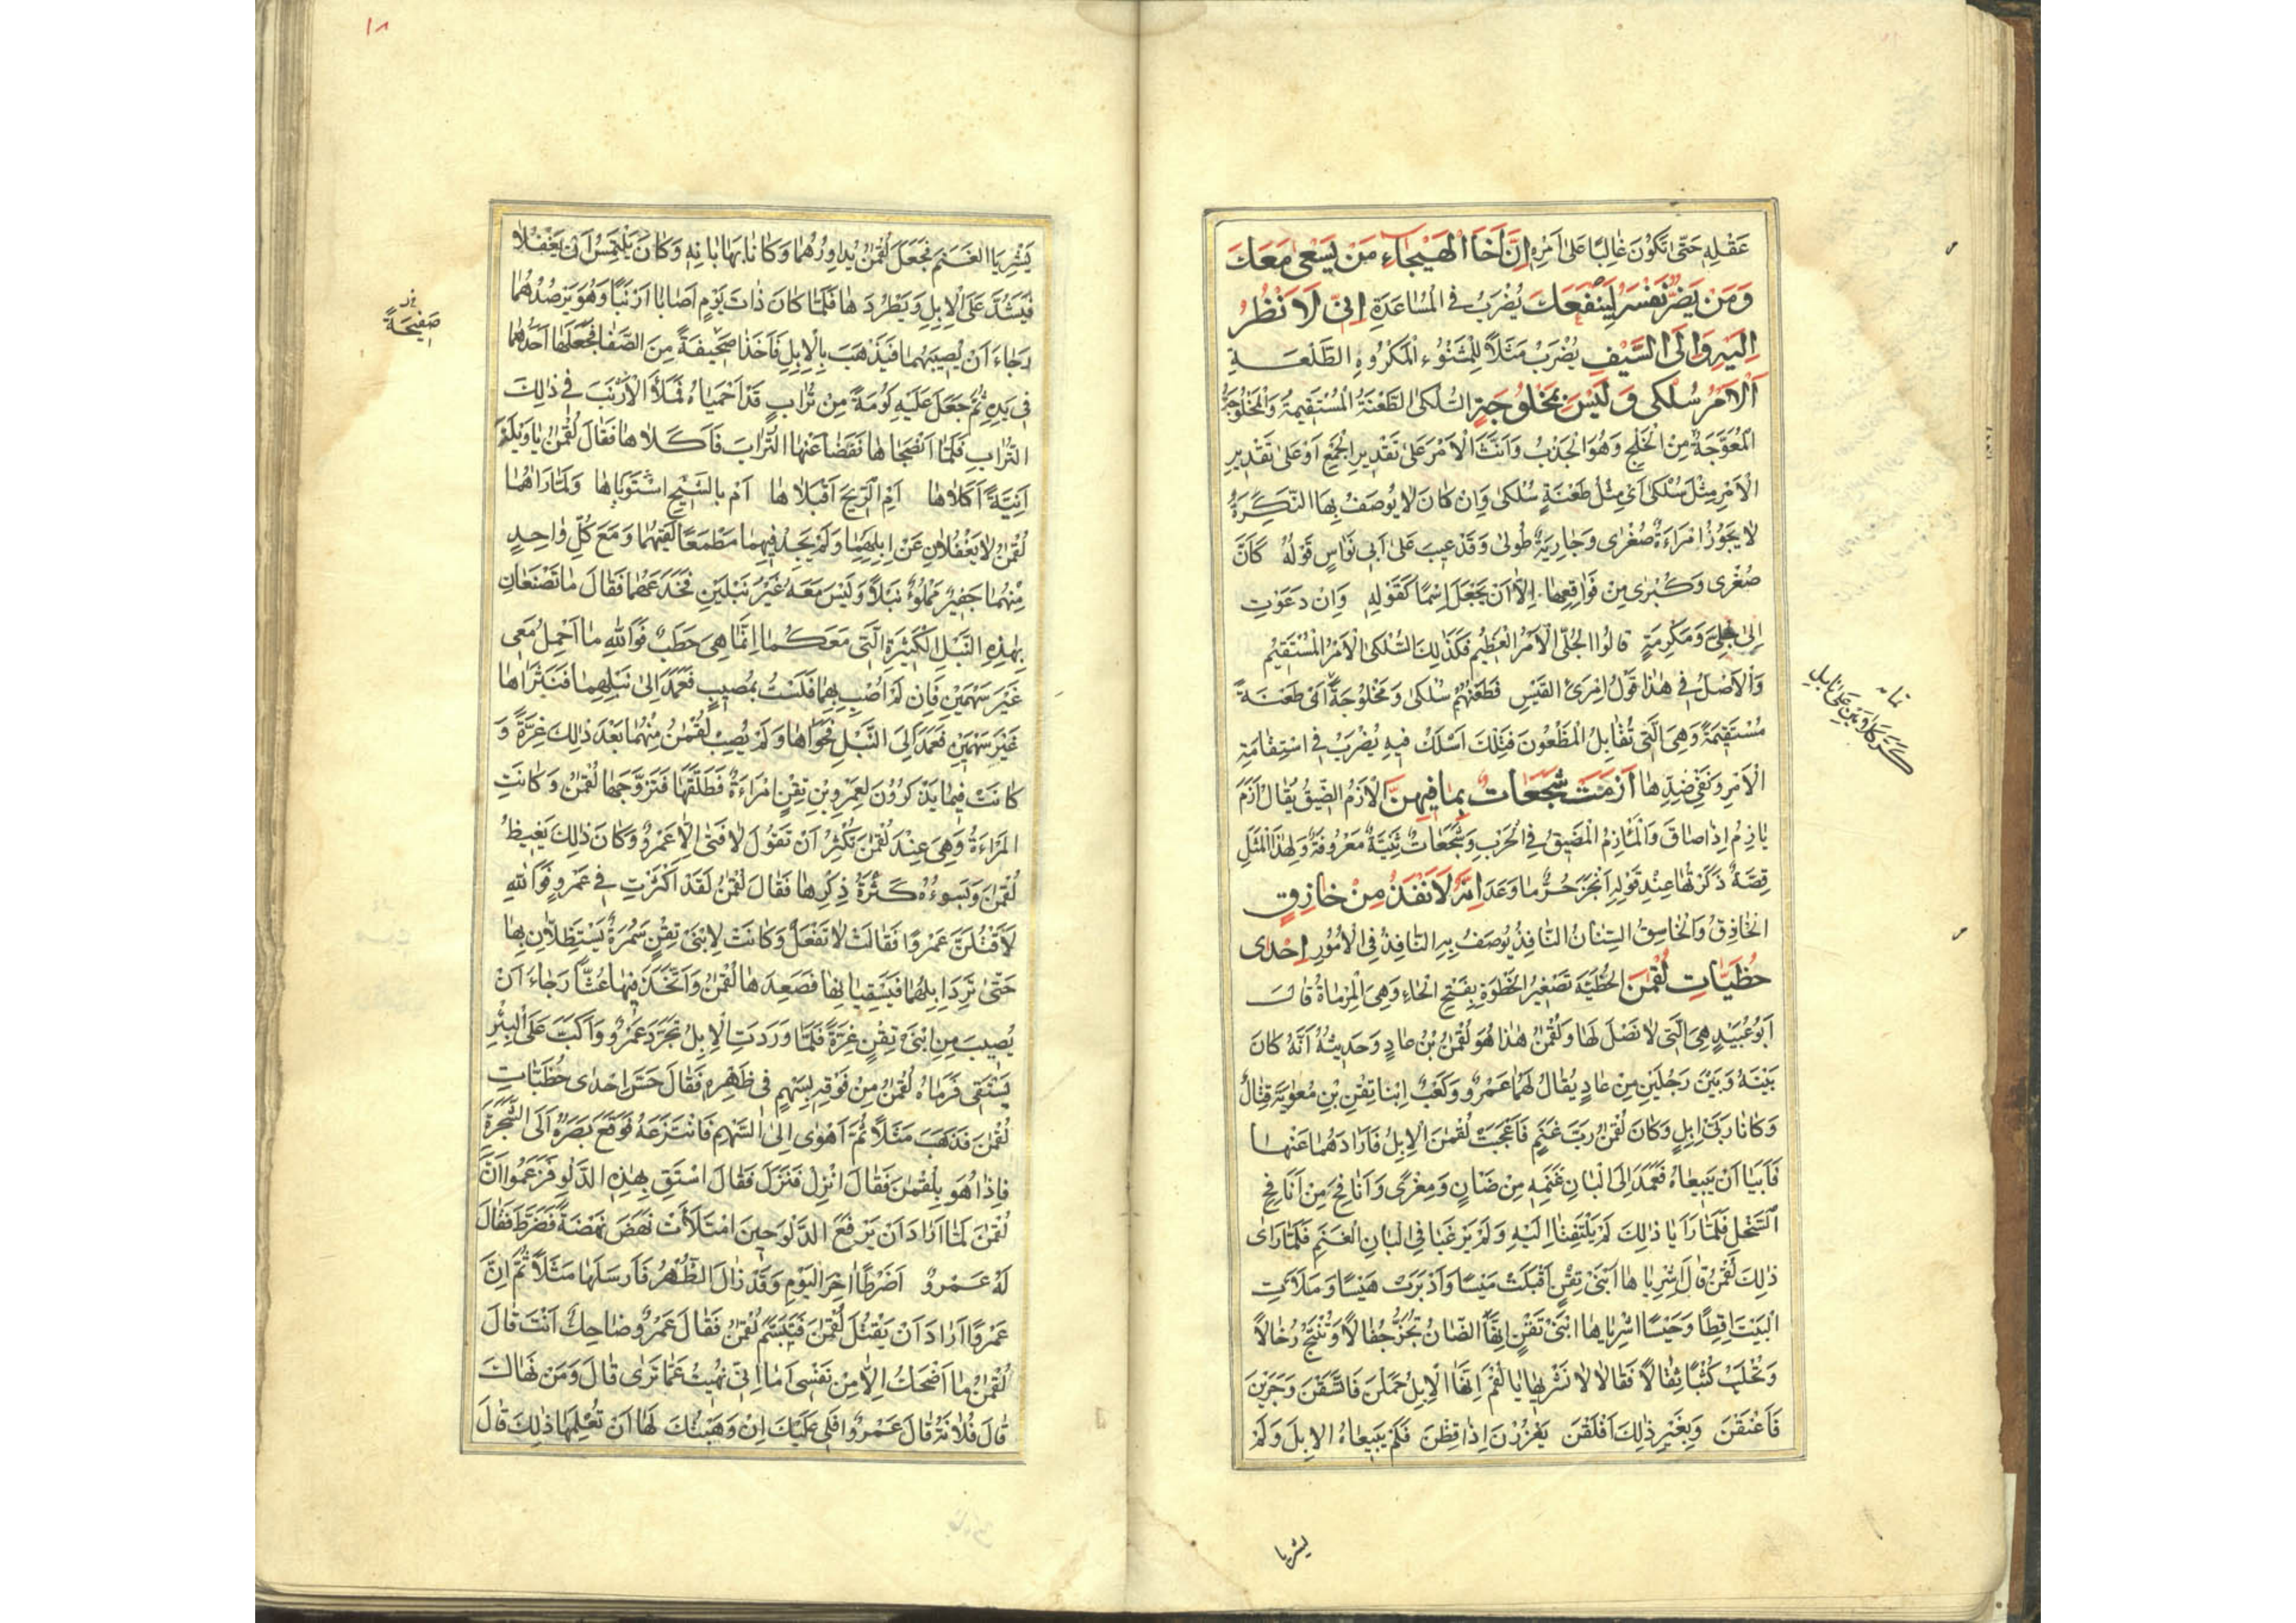 عَقْلِهِ حَتّىٰ تَكُونَ غَالِبًا عَلىٰ اَمْرِهِ اِنَّ اَخَا الْهَيْجَاءِ مَنْ يَسْعىٰ مَعَكَ
وَمَنْ يَضُرُّ نَفْسَهُ لِيَنْفَعَكَ يُضْرَبُ فِي الْمُسَاعَدَةِ اِنّي لَاَنْظُرُ
اِلَيْهِ وَاِلَى السَّيْفِ يُضْرَبُ مَثَلًا لِلْمَشْنُوءِ الْمَكْرُوهِ الطَّلْعَةِ
اَلْاَمْرُ سُلْكىٰ وَلَيْسَ بِمَخْلُوجَةٍ السُّلْكىٰ الطَّعْنَةُ الْمُسْتَقِيمَةُ وَالْمَخْلُوجَةُ
الْمُعَوَّجَةُ مِنَ الْخَلْجِ وَهُوَ الْجَذْبُ وَاَنَّثَ الْاَمْرَ عَلىٰ تَقْدِيرِ الْجَمْعِ اَوْ عَلىٰ تَقْدِيرِ
الْاَمْرِ مِثْلَ سُلْكىٰ اَيْ مِثْلُ طَعْنَةٍ سُلْكىٰ وَاِنْ كَانَ لَا يُوصَفُ بِهَا النَّكِرَةُ
لَا يَجُوزُ امْرَاَةٌ صُغْرىٰ وَجَارِيَةٌ طُولىٰ وَقَدْ عِيبَ عَلىٰ اَبِي نَوَاسٍ قَوْلُهُ كَاَنَّ
صُغْرىٰ وَكُبْرىٰ مِنْ فَوَاقِعِهَا اِلَّا اَنْ يُجْعَلَ اِسْمًا كَقَوْلِهِ وَاِنْ دَعَوْتِ
اِلىٰ جُلّىٰ وَمَكْرُمَةٍ قَالُوا الْجُلّىٰ الْاَمْرُ الْعَظِيمُ فَكَذٰلِكَ السُّلْكىٰ الْاَمْرُ الْمُسْتَقِيمُ
وَالْاَصْلُ فِي هٰذَا قَوْلُ امْرِئِ الْقَيْسِ فَطَعَنَهُمْ سُلْكىٰ وَمَخْلُوجَةً اَيْ طَعْنَةً
مُسْتَقِيمَةً وَهِيَ الَّتِي تُقَابِلُ الْمَطْعُونَ فَتِلْكَ اَسْلَكُ فِيهِ يُضْرَبُ فِي اسْتِقَامَةِ
الْاَمْرِ وَنَفْيِ ضِدِّهَا اَزَمَتْ شَجَعَاتٌ بِمَا فِيهِنَّ الْاَزْمُ الضِّيقُ يُقَالُ اَزَمَ
يَازِمُ اِذَا ضَاقَ وَالْمَأْزِمُ الْمَضِيقُ فِي الْحَرْبِ وَشَجَعَاتٌ ثَنِيَّةٌ مَعْرُوفَةٌ وَلِهٰذَا الْمَثَلِ
قِصَّةٌ ذَكَرْتُهَا عِنْدَ قَوْلِهِ اَنْجَزَ حُرٌّ مَا وَعَدَ اِنَّهُ لَاَنْفَذُ مِنْ خَازِقٍ
الْخَازِقُ وَالْخَاسِقُ السِّنَانُ النَّافِذُ يُوصَفُ بِهِ النَّافِذُ فِي الْاُمُورِ اِحْدىٰ
حُظَيَّاتِ لُقْمٰنَ الْحُظَيَّةُ تَصْغِيرُ الْحَظْوَةِ بِفَتْحِ الْحَاءِ وَهِيَ الْمِرْمَاةُ قَالَ
اَبُو عُبَيْدٍ هِيَ الَّتِي لَا نَصْلَ لَهَا وَلُقْمٰنُ هٰذَا هُوَ لُقْمٰنُ بْنُ عَادٍ وَحَدِيثُهُ اَنَّهُ كَانَ
بَيْنَهُ وَبَيْنَ رَجُلَيْنِ مِنْ عَادٍ يُقَالُ لَهُمَا عَمْرٌو وَكَعْبٌ اِبْنَا تِقْنِ بْنِ مُعٰوِيَةَ قِتَالٌ
وَكَانَا رَبَّيْ اِبِلٍ وَكَانَ لُقْمٰنُ رَبَّ غَنَمٍ فَاَعْجَبَتْ لُقْمٰنَ الْاِبِلُ فَاَرَادَهُمَا عَنْهَا
فَاَبَيَا اَنْ يَبِيعَاهُ فَعَمَدَ اِلىٰ اَلْبَانِ غَنَمِهِ مِنْ ضَانٍ وَمِعْزًى وَاَنَافِحَ مِنْ اَنَافِحِ
السَّخْلِ فَلَمَّا رَاَيَا ذٰلِكَ لَمْ يَلْتَفِتَا اِلَيْهِ وَلَمْ يَرْغَبَا فِي اَلْبَانِ الْغَنَمِ فَلَمَّا رَاىٰ
ذٰلِكَ لُقْمٰنُ قَالَ اشْرِيَاهَا ابْنَيْ تِقْنٍ اَقْبَلَتْ مَيْسًا وَاَدْبَرَتْ هَيْسًا وَمَلَاَتِ
الْبَيْتَ اَقِطًا وَحَيْسًا اشْرِيَاهَا ابْنَيْ تِقْنٍ اِنَّهَا الضَّانُ تُجَزُّ جُفَالًا وَتُنْتَجُ رُخَالًا
وَتُحْلَبُ كُثَبًا ثِقَالًا فَقَالَا لَا نَشْرِيهَا يَا لُقْمُ اِنَّهَا الْاِبِلُ حَمَلْنَ فَاتَّسَقْنَ وَجَرَيْنَ
فَاَعْنَقْنَ وَبِغَيْرِ ذٰلِكَ اَفْلَقْنَ يَغْزُرْنَ اِذَا قَظْنَ فَلَمْ يَبِيعَاهُ الْاِبِلَ وَلَمْ
يشريا
يَشْرِيَا الْغَنَمَ فَجَعَلَ لُقْمٰنُ يُدَاوِرُهُمَا وَكَانَا يَهَابَانِهِ وَكَانَ يَلْتَمِسُ اَنْ يَغْفُلَا
فَيَشُدَّ عَلَى الْاِبِلِ وَيَطْرُدَهَا فَلَمَّا كَانَ ذَاتَ يَوْمٍ اَصَابَا اَرْنَبًا وَهُوَ يَرْصُدُهُمَا
رَجَاءَ اَنْ يُصِيبَهُمَا فَيَذْهَبَ بِالْاِبِلِ فَاَخَذَا صَحِيفَةً مِنَ الصَّفَا فَجَعَلَهَا اَحَدُهُمَا
فِي يَدِهِ ثُمَّ جَعَلَ عَلَيْهِ كَوْمَةً مِنْ تُرَابٍ قَدْ اَحْمَيَاهُ فَمَلَّا الْاَرْنَبَ فِي ذٰلِكَ
التُّرَابِ فَلَمَّا اَنْضَجَاهَا نَفَضَا عَنْهَا التُّرَابَ فَاَكَلَاهَا فَقَالَ لُقْمٰنُ يَا وَيْلَهُ
اَنِيَّةً اَكَلَاهَا اَمِ الرِّيحَ اَقْبَلَاهَا اَمْ بِالشِّيحِ اشْتَوَيَاهَا وَلَمَّا رَاٰهُمَا
لُقْمٰنُ لَا يَغْفُلَانِ عَنْ اِبِلِهِمَا وَلَمْ يَجِدْ فِيهِمَا مَطْمَعًا لَقِيَهُمَا وَمَعَ كُلِّ وَاحِدٍ
مِنْهُمَا جَفِيرٌ مَمْلُوءٌ نَبْلًا وَلَيْسَ مَعَهُ غَيْرُ نَبْلَيْنِ فَخَدَعَهُمَا فَقَالَ مَا تَصْنَعَانِ
بِهٰذِهِ النَّبْلِ الْكَثِيرَةِ الَّتِي مَعَكُمَا اِنَّمَا هِيَ حَطَبٌ فَوَاللّٰهِ مَا اَحْمِلُ مَعِي
غَيْرَ سَهْمَيْنِ فَاِنْ لَمْ اُصِبْ بِهِمَا فَلَسْتُ بِمُصِيبٍ فَعَمَدَا اِلىٰ نَبْلِهِمَا فَنَثَرَاهَا
غَيْرَ سَهْمَيْنِ فَعَمَدَ اِلَى النَّبْلِ فَحَوَاهَا وَلَمْ يُصِبْ لُقْمٰنُ مِنْهُمَا بَعْدَ ذٰلِكَ غِرَّةً وَ
كَانَتْ فِيمَا يَذْكُرُونَ لِعَمْرِو بْنِ تِقْنٍ امْرَاَةٌ فَطَلَّقَهَا فَتَزَوَّجَهَا لُقْمٰنُ وَكَانَتِ
الْمَرْاَةُ وَهِيَ عِنْدَ لُقْمٰنَ تُكْثِرُ اَنْ تَقُولَ لَا فَتىٰ اِلَّا عَمْرٌو وَكَانَ ذٰلِكَ يَغِيظُ
لُقْمٰنَ وَيَسُوءُهُ كَثْرَةُ ذِكْرِهَا فَقَالَ لُقْمٰنُ لَقَدْ اَكْثَرْتِ فِي عَمْرٍو فَوَاللّٰهِ
لَاَقْتُلَنَّ عَمْرًوا فَقَالَتْ لَا تَفْعَلْ وَكَانَتْ لِابْنَيْ تِقْنٍ سَمُرَةٌ يَسْتَظِلَّانِ بِهَا
حَتّىٰ تَرِدَ اِبِلُهُمَا فَيَسْقِيَانِهَا فَصَعِدَهَا لُقْمٰنُ وَاتَّخَذَ فِيهَا عُشًّا رَجَاءَ اَنْ
يُصِيبَ مِنِ ابْنَيْ تِقْنٍ غِرَّةً فَلَمَّا وَرَدَتِ الْاِبِلُ تَجَرَّدَ عَمْرٌو وَاَكَبَّ عَلَى الْبِئْرِ
يَسْتَقِي فَرَمَاهُ لُقْمٰنُ مِنْ فَوْقِهِ بِسَهْمٍ فِي ظَهْرِهِ فَقَالَ حَسِّ اِحْدىٰ حُظَيَّاتِ
لُقْمٰنَ فَذَهَبَ مَثَلًا ثُمَّ اَهْوىٰ اِلَى السَّهْمِ فَانْتَزَعَهُ فَوَقَعَ بَصَرُهُ اِلَى الشَّجَرَةِ
فَاِذَا هُوَ بِلُقْمٰنَ فَقَالَ انْزِلْ فَنَزَلَ فَقَالَ اسْتَقِ بِهٰذِهِ الدَّلْوِ فَزَعَمُوا اَنَّ
لُقْمٰنَ لَمَّا اَرَادَ اَنْ يَرْفَعَ الدَّلْوَ حِينَ امْتَلَاَتْ نَهَضَ نَهْضَةً فَضَرَطَ فَقَالَ
لَهُ عَمْرٌو اَضَرْطًا اٰخِرَ الْيَوْمِ وَقَدْ زَالَ الظُّهْرُ فَاَرْسَلَهَا مَثَلًا ثُمَّ اِنَّ
عَمْرًوا اَرَادَ اَنْ يَقْتُلَ لُقْمٰنَ فَتَبَسَّمَ لُقْمٰنُ فَقَالَ عَمْرٌو ضَاحِكٌ اَنْتَ قَالَ
لُقْمٰنُ مَا اَضْحَكُ اِلَّا مِنْ نَفْسِي اَمَا اِنّي نُهِيتُ عَمَّا تَرىٰ قَالَ وَمَنْ نَهَاكَ
قَالَ فُلَانَةُ قَالَ عَمْرٌو اَفَلِي عَلَيْكَ اِنْ وَهَبْتُكَ لَهَا اَنْ تُعْلِمَهَا ذٰلِكَ قَالَ
صَفِيحَةً
١٨